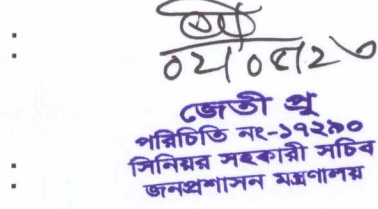 জেতী প্রু
পরিচিতি নং-১৭২৯০
সিনিয়র সহকারী সচিব
জনপ্রশাসন মন্ত্রণালয়